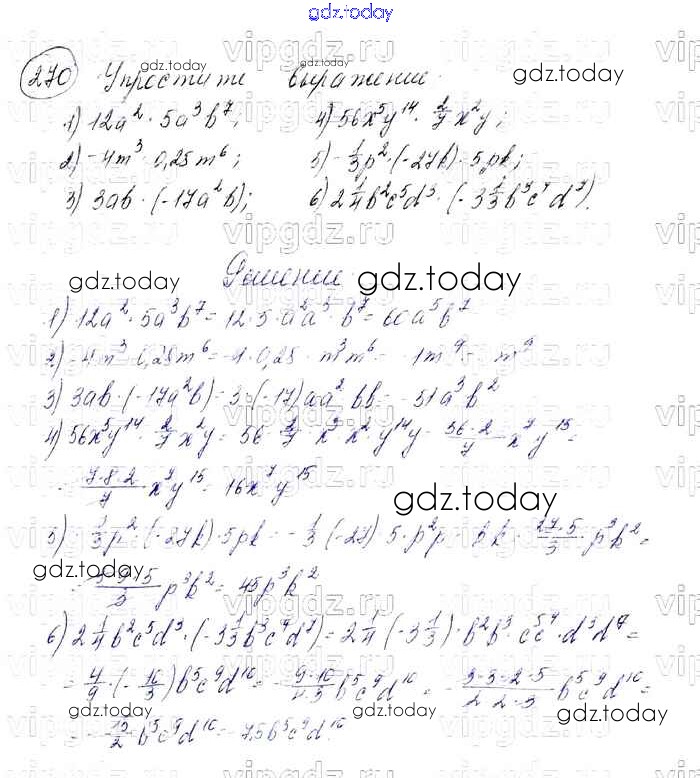 gdz.today
270 Упростите выражение.
1) 12a²·5a³b⁷; 4) 56x⁵y¹⁴·2/7x²y;
2) -4m³·0,25m⁶; 5) -1/3p²·(-27k)·5pk;
3) 3ab·(-17a²b); 6) 2 1/4b²c⁵d³·(-3 1/3b³c⁴d⁷).
Решение.
1) 12a²·5a³b⁷=12·5·a²a³·b⁷=60a⁵b⁷
2) -4m³·0,25m⁶=-4·0,25·m³m⁶=-1m⁹=-m⁹
3) 3ab·(-17a²b)=3·(-17)aa²bb=-51a³b²
4) 56x⁵y¹⁴·2/7x²y=56·2/7·x⁵x²·y¹⁴y=56·2/7x⁷y¹⁵=
=7·8·2/7x⁷y¹⁵=16x⁷y¹⁵
5) -1/3p²·(-27k)·5pk=-1/3·(-27)·5·p²p·kk=27·5/3·p³k²=
=3·9·5/3p³k²=45p³k²
6) 2 1/4b²c⁵d³·(-3 1/3b³c⁴d⁷)=2 1/4·(-3 1/3)·b²b³·c⁵c⁴·d³d⁷=
=4/9·(-10/3)b⁵c⁹d¹⁰=-9·10/4·3b⁵c⁹d¹⁰=-3·3·2·5/2·2·3b⁵c⁹d¹⁰=
=-15/2b⁵c⁹d¹⁰=-7,5b⁵c⁹d¹⁰.